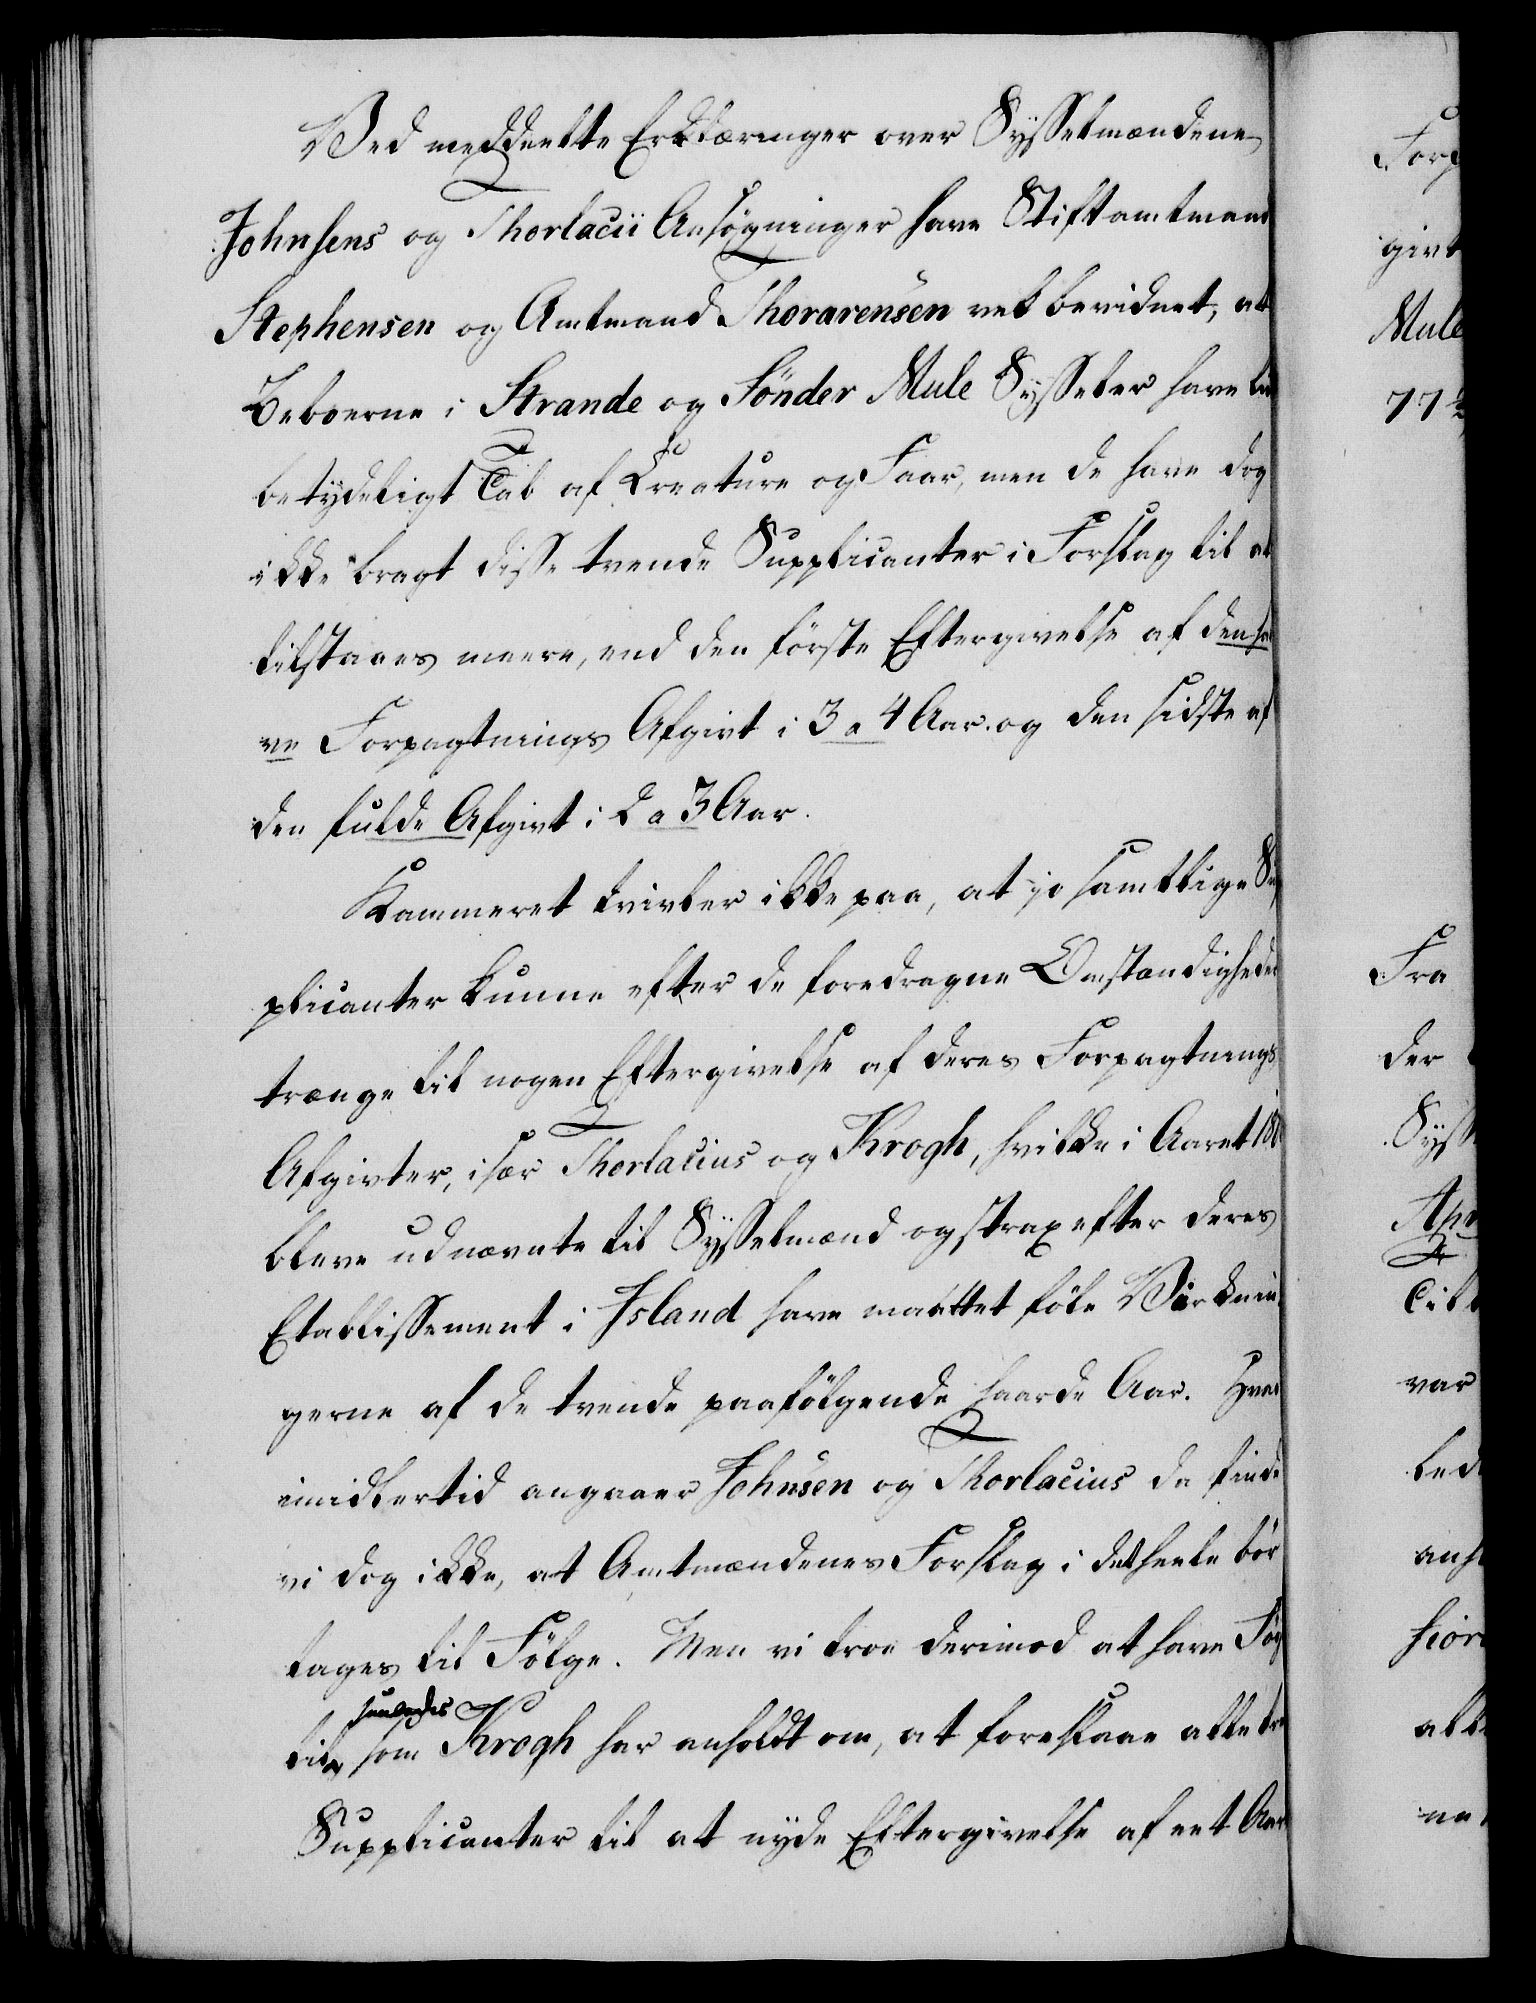 Ved meddeelte Erklæringer over Sysselmændene
Johnsens og Thorlacii Ansøgninger have Stiftamtmand
Stephensen og Amtmand Thorarensen vel bevidnet, at
Beboerne i Strande og Sönder Mule Sysseler have lidt
betydeligt Tab af Creature og Faar, men de have dog
ikke bragt disse tvende Supplicanter i Forslag til at
tilstaaes meere, end den første Eftergivelse af den hal
ve Forpagtnings Afgivt i 3 a 4 Aar. og den sidste af
den fulde Afgivt i 2 a 3 Aar.
Kammeret tvivler ikke paa, at jo samtlige Sup
plicanter kunne efter de foredragne Omstændigheder
trænge til nogen Eftergivelse af deres Forpagtnings
Afgivter, især Thorlacius og Krogh, hvilke i Aaret 180
bleve udnævnte til Sysselmænd og strax efter deres
Etablissement i Island have maattet føle Virknin
gerne af de tvende paafölgende haarde Aar. Hvad
imidlertid angaaer Johnsen og Thorlacius da finde
vi dog ikke, at Amtmændenes Forslag i det heele bör
tages til Fölge. Men vi troe derimod at have Föj
til, saaledes som Krogh har anholdt om, at foreslaae alle tre
Supplicanter til at nyde Eftergivelse af eet Aars
Forp
givt
Mule
77½
Fra
der
Syss
Apr
Till
var
led
anh
hior
alle
ne